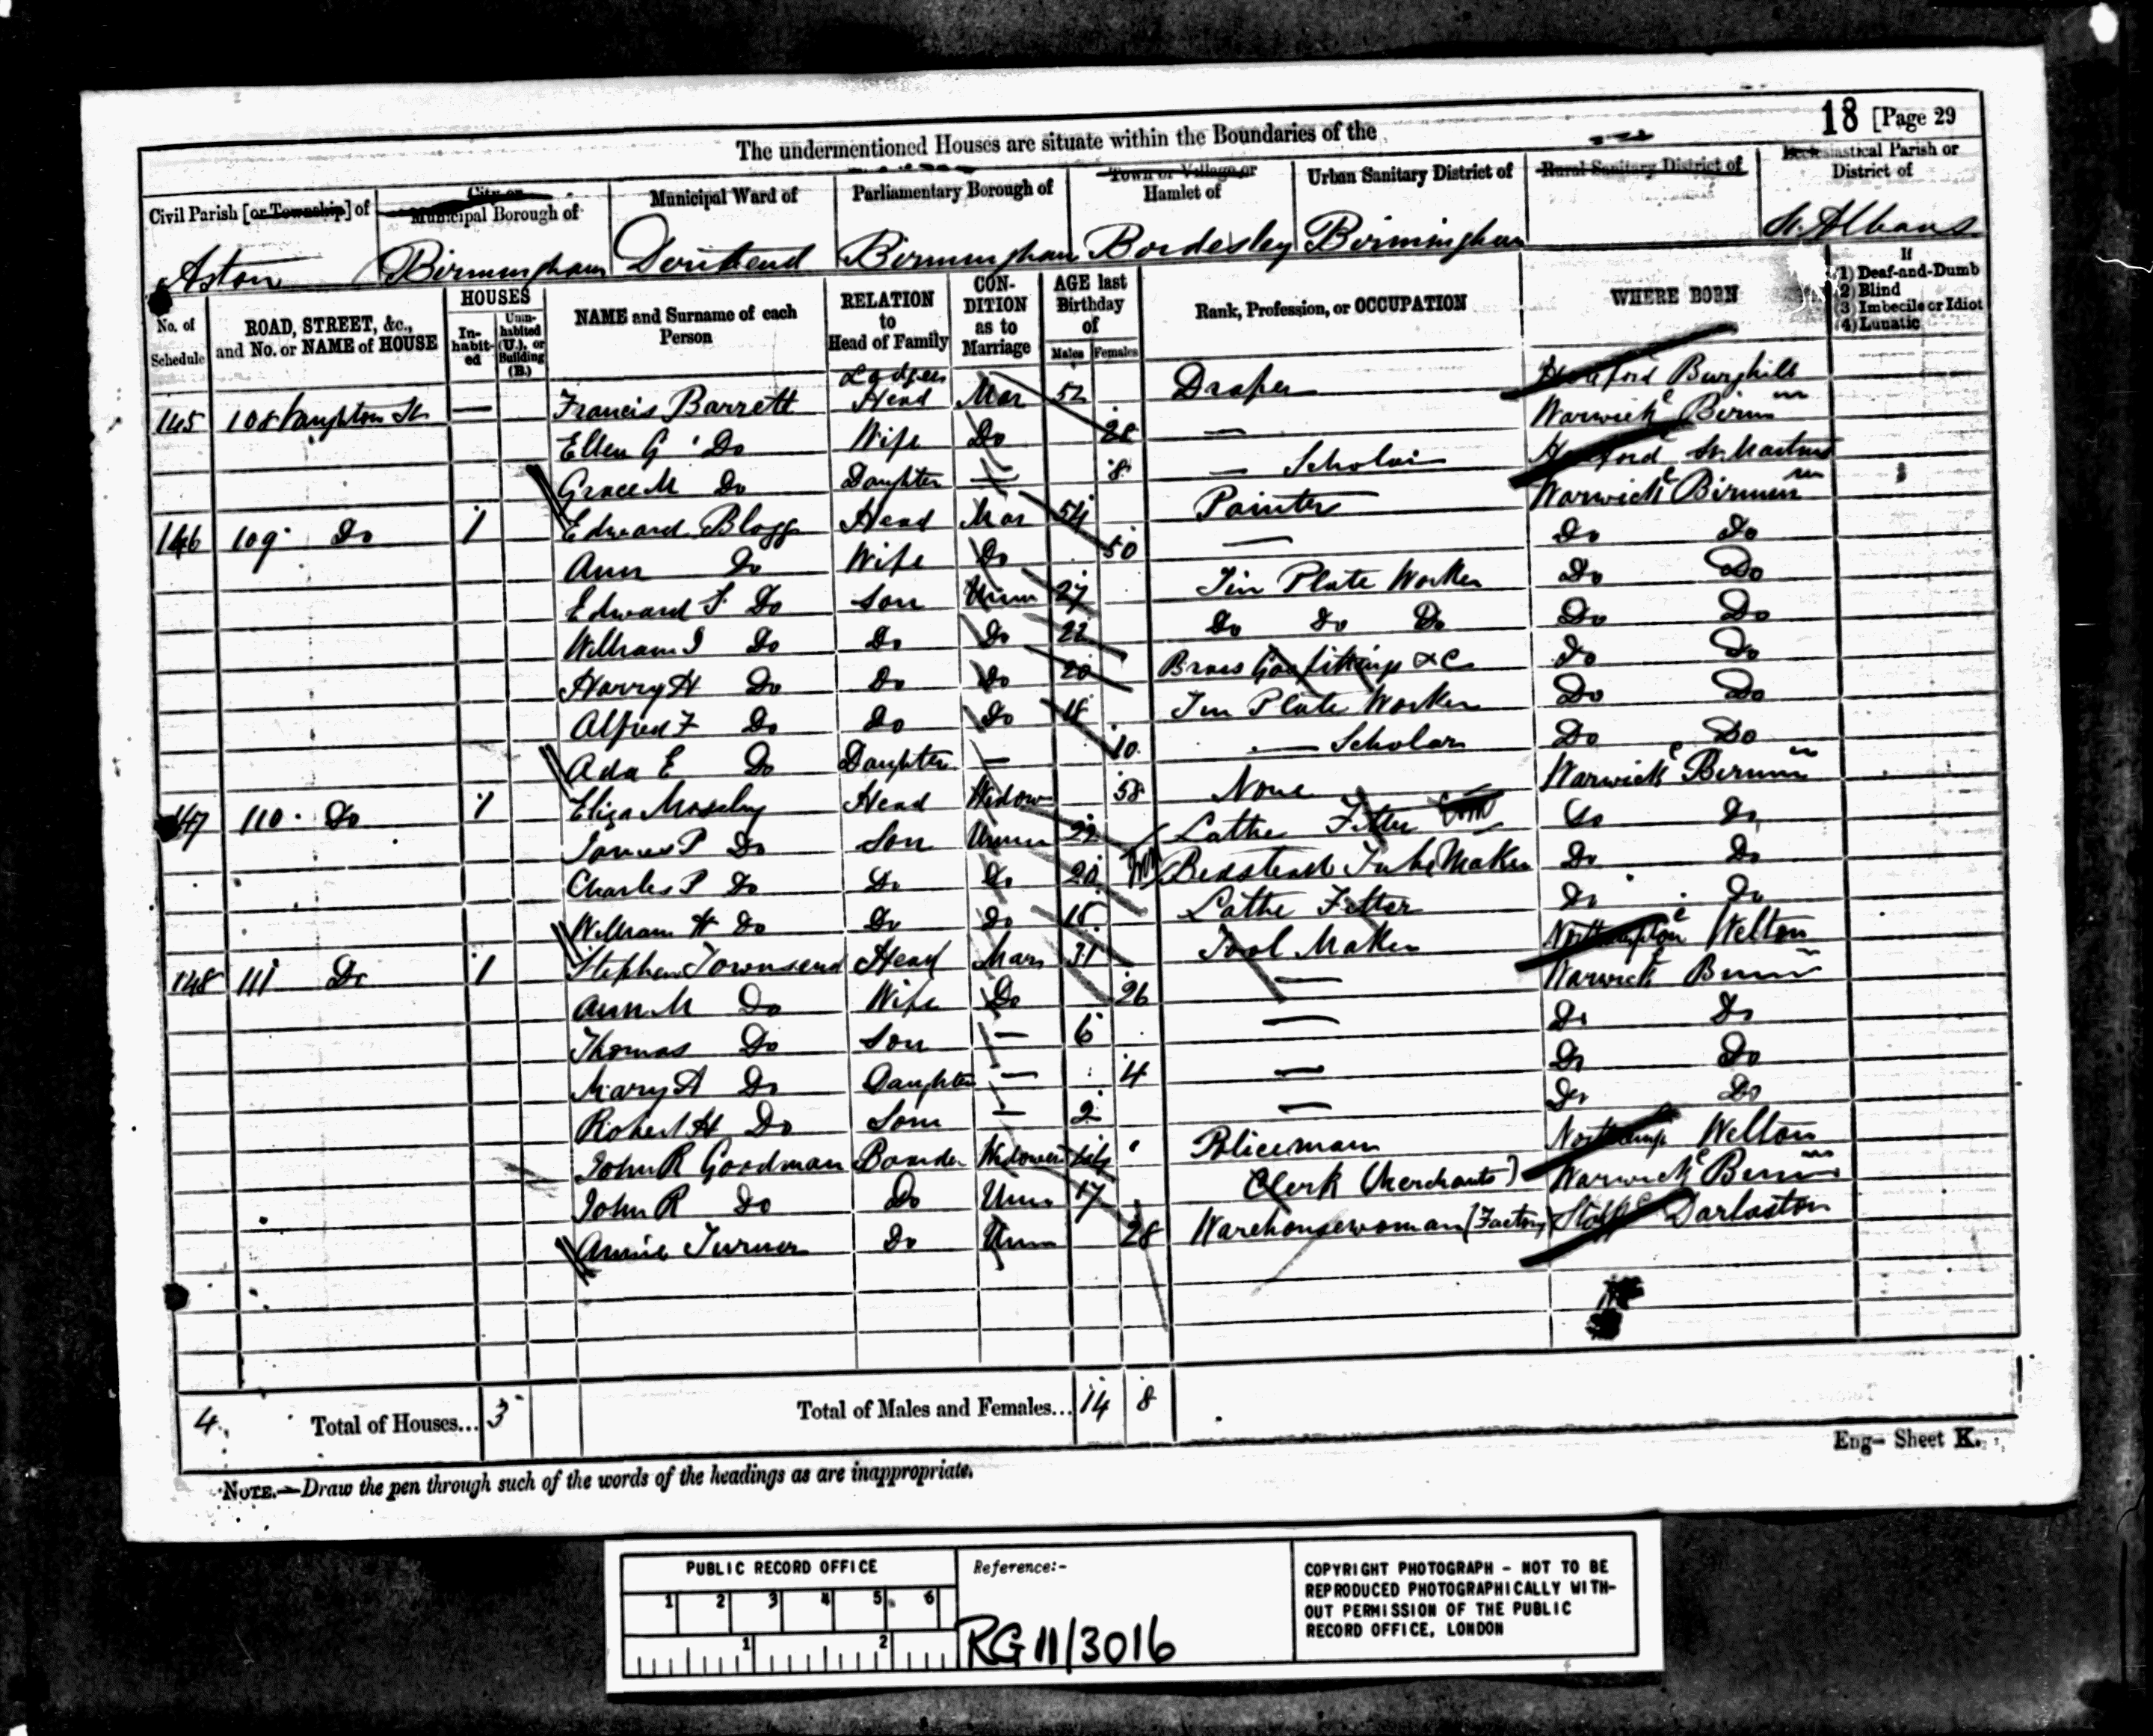 18 [Page 29
The undermentioned Houses are situate within the Boundaries of the
Civil Parish [or Township] of
City or Municipal Borough of
Municipal Ward of
Parliamentary Borough of
Town or Village or Hamlet of
Urban Sanitary District of
Rural Sanitary District of
Ecclesiastical Parish or District of
Aston Birmingham Deritend Birmingham Bordesley Birmingham St. Albans
No. of Schedule
ROAD, STREET, &c., and No. or NAME of HOUSE
HOUSES
In-habit-ed
Unin-habited (U.), or Building (B.)
NAME and Surname of each Person
RELATION to Head of Family
CON-DITION as to Marriage
AGE last Birthday of
Males Females
Rank, Profession, or OCCUPATION
WHERE BORN
If
(1) Deaf-and-Dumb
(2) Blind
(3) Imbecile or Idiot
(4) Lunatic
Lodger
145 108 — Francis Barrett Head Mar 52 Draper Hereford Burghill
Ellen G Do Wife Do 28 — Warwick Birmm
Grace M Do Daughter — 8 — Scholar Hereford St. Martins
146 109 Do 1 Edward Blogg Head Mar 54 Painter Warwick Birmm
Ann Do Wife Do 50 — Do Do
Edward Do Son Unm 27 Tin Plate Worker Do Do
William Do Do Do 22 Do Do Do Do Do
Harry H Do Do Do 20 Brass Gasfittings &c Do Do
Alfred F Do Do Do 18 Tin Plate Worker Do Do
Ada E Do Daughter — 10 — Scholar Do Do
147 110 Do 1 Eliza Moseley Head Widow 58 None Warwick Birmm
James P Do Son Unm 22 Lathe Fitter Do Do
Charles P Do Do Do 20 Bedstead Tube Maker Do Do
William H Do Do Do 18 Lathe Fitter Do Do
148 111 Do 1 Stephen Townsend Head Mar 31 Tool Maker Northampton Welton
Ann M Do Wife Do 26 — Warwick Birmm
Thomas Do Son — 6 — Do Do
Mary A Do Daughter — 4 — Do Do
Robert H Do Son — 2 — Do Do
John R Goodman Boarder Widower Policeman Northamp Welton
John R Do Do Unm 17 Clerk (Merchants) Warwick Birmm
Annie Turner Do Unm 28 Warehousewoman (Factory) Staff Darlaston
4 Total of Houses... 3 Total of Males and Females... 14 8
Eng— Sheet K.
NOTE.—Draw the pen through such of the words of the headings as are inappropriate.
PUBLIC RECORD OFFICE
1 2 3 4 5 6
1 2
Reference:-
RG 11/3016
COPYRIGHT PHOTOGRAPH - NOT TO BE
REPRODUCED PHOTOGRAPHICALLY WITH-
OUT PERMISSION OF THE PUBLIC
RECORD OFFICE, LONDON